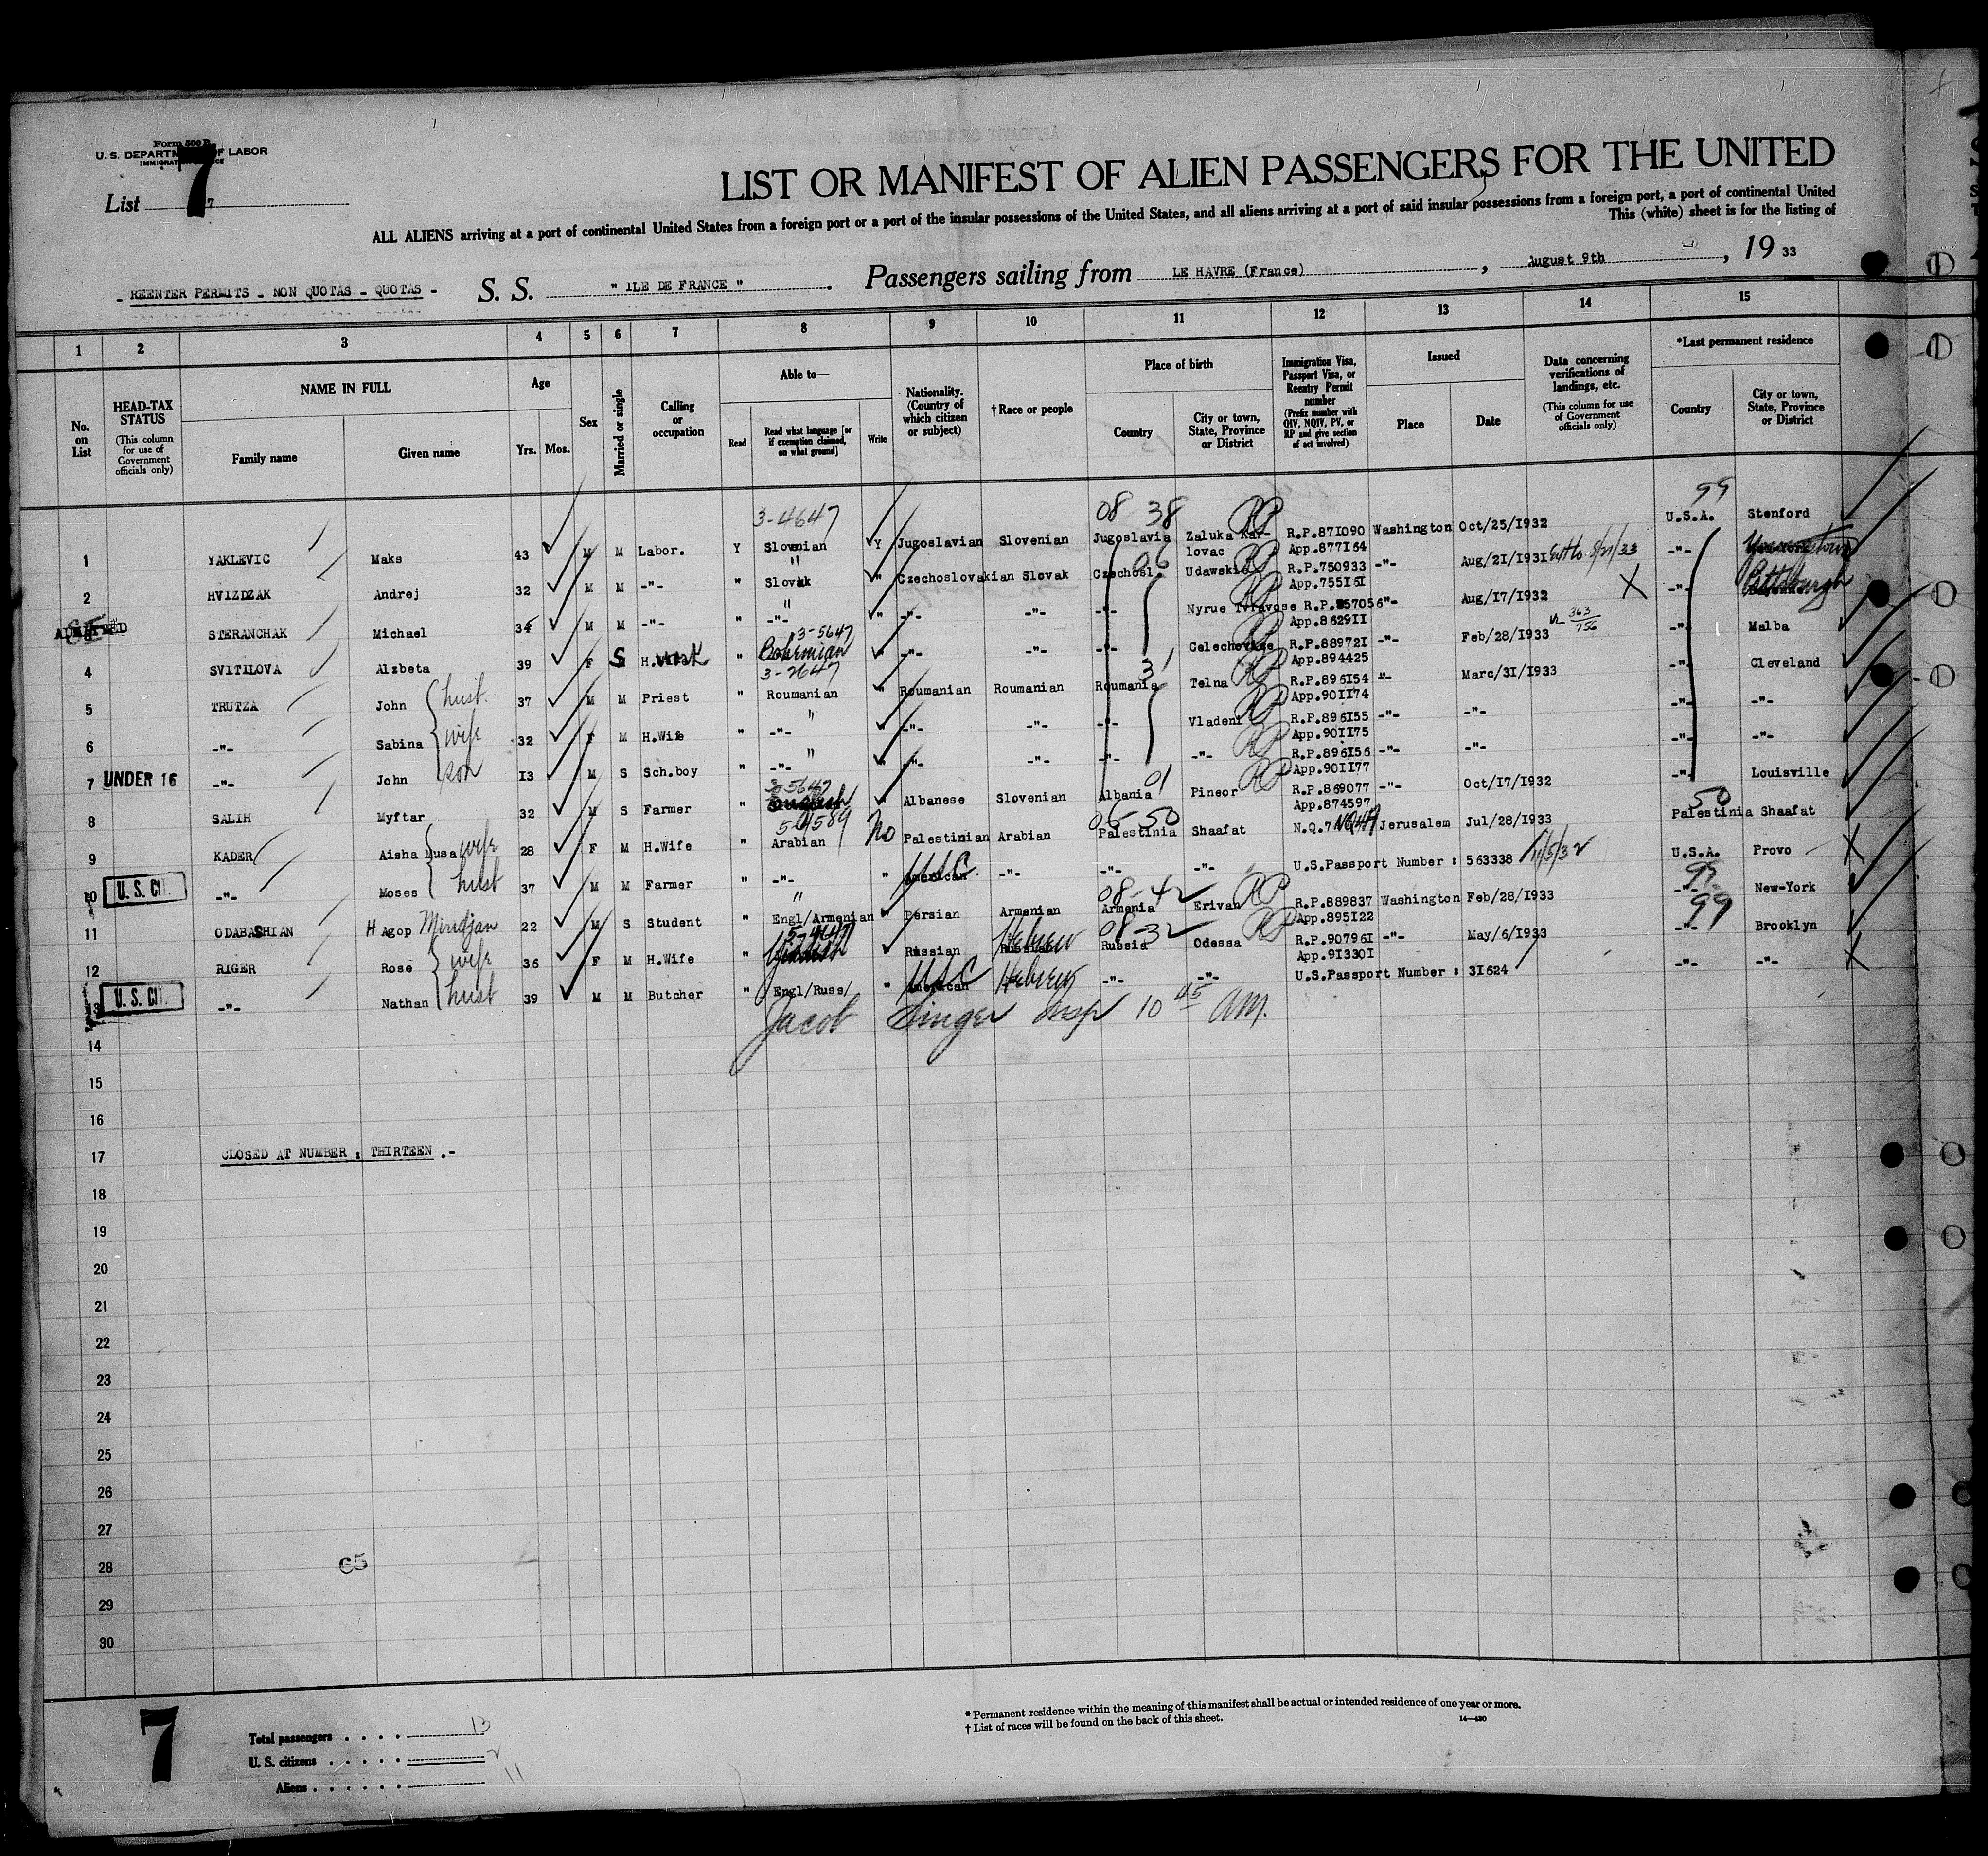 Form 500 B
U. S. DEPARTMENT OF LABOR
IMMIGRATION SERVICE
List 7
7
LIST OR MANIFEST OF ALIEN PASSENGERS FOR THE UNITED
ALL ALIENS arriving at a port of continental United States from a foreign port or a port of the insular possessions of the United States, and all aliens arriving at a port of said insular possessions from a foreign port, a port of continental United
This (white) sheet is for the listing of
- REENTER PERMITS - NON QUOTAS - QUOTAS - S. S. " ILE DE FRANCE " . Passengers sailing from LE HAVRE (France) , August 9th , 19 33
1 2 3 4 5 6 7 8 9 10 11 12 13 14 15
No. on List
HEAD-TAX STATUS (This column for use of Government officials only)
NAME IN FULL
Family name Given name
Age
Yrs. Mos.
Sex
Married or single
Calling or occupation
Able to—
Read Read what language [or if exemption claimed, on what ground] Write
Nationality. (Country of which citizen or subject)
† Race or people
Place of birth
Country City or town, State, Province or District
Immigration Visa, Passport Visa, or Reentry Permit number (Prefix number with QIV, NQIV, PV, or RP and give section of act involved)
Issued
Place Date
Data concerning verifications of landings, etc. (This column for use of Government officials only)
*Last permanent residence
Country City or town, State, Province or District
3-4647 08 38 RP 99
1 YAKLEVIC Maks 43 M M Labor. Y Slovenian Y Jugoslavian Slovenian Jugoslavia Zaluka Kar- lovac R.P.871090 App.877164 Washington Oct/25/1932 U.S.A. Stenford
2 HVIZDZAK Andrej 32 M M -"- " Slovak " Czechoslovakian Slovak Czechosl. 06 Udawskie RP R.P.750933 App.755161 -"- Aug/21/1931 5/21/33 -"- Youngstown
ADMITTED STERANCHAK Michael 34 M M -"- " -"- " -"- -"- -"- Nyrue Tvravose RP R.P.857056 App.862911 "- Aug/17/1932 X -"- Pittsburgh
3-5647 363 756
4 SVITILOVA Alzbeta 39 F S H.Work " Bohemian " -"- -"- -"- Celechovice RP R.P.889721 App.894425 -"- Feb/28/1933 -"- Malba
3-2647 31
5 TRUTZA John husb. 37 M M Priest " Roumanian " Roumanian Roumanian Roumania Telna RP R.P.896154 App.901174 -"- Marc/31/1933 -"- Cleveland
6 -"- Sabina wife 32 F M H.Wife " -"- " -"- -"- -"- Vladeni RP R.P.896155 App.901175 -"- -"- -"- -"-
7 UNDER 16 -"- John son 13 M S Sch.boy " -"- " -"- -"- -"- -"- RP R.P.896156 App.901177 -"- -"- -"- -"-
3-5647 01
8 SALIH Myftar 32 M S Farmer " English " Albanese Slovenian Albania Pineor RP R.P.869077 App.874597 -"- Oct/17/1932 -"- Louisville
05-50 50
9 KADER Aisha Musa wife 28 F M H.Wife " Arabian No Palestinian Arabian Palestinia Shaafat Jerusalem Jul/28/1933 Palestinia Shaafat
10 U. S. CIT. -"- Moses husb 37 M M Farmer " -"- " American USC -"- -"- -"- U.S.Passport Number : 563338 11/5/32 U.S.A. Provo X
08-42 99
11 ODABASHIAN Hagop Miridjan 22 M S Student " Engl/Armenian " Persian Armenian Armenia Erivan RP R.P.889837 App.895122 Washington Feb/28/1933 -"- New-York
08-32 99
12 RIGER Rose wife 36 F M H.Wife " Yiddish Russian Hebrew Russia Odessa RP R.P.907961 App.913301 -"- May/6/1933 -"- Brooklyn
13 U. S. CIT. -"- Nathan husb 39 M M Butcher " Engl/Russ/ " American USC Hebrew -"- -"- U.S.Passport Number : 31624 -"- -"- X
Jacob Singer Insp 10 45 AM.
14
15
16
17 CLOSED AT NUMBER : THIRTEEN .-
18
19
20
21
22
23
24
25
26
27
28 C5
29
30
7
Total passengers . . . . 13
U. S. citizens . . . . . 2
Aliens . . . . . . 11
* Permanent residence within the meaning of this manifest shall be actual or intended residence of one year or more.
† List of races will be found on the back of this sheet.
14—430